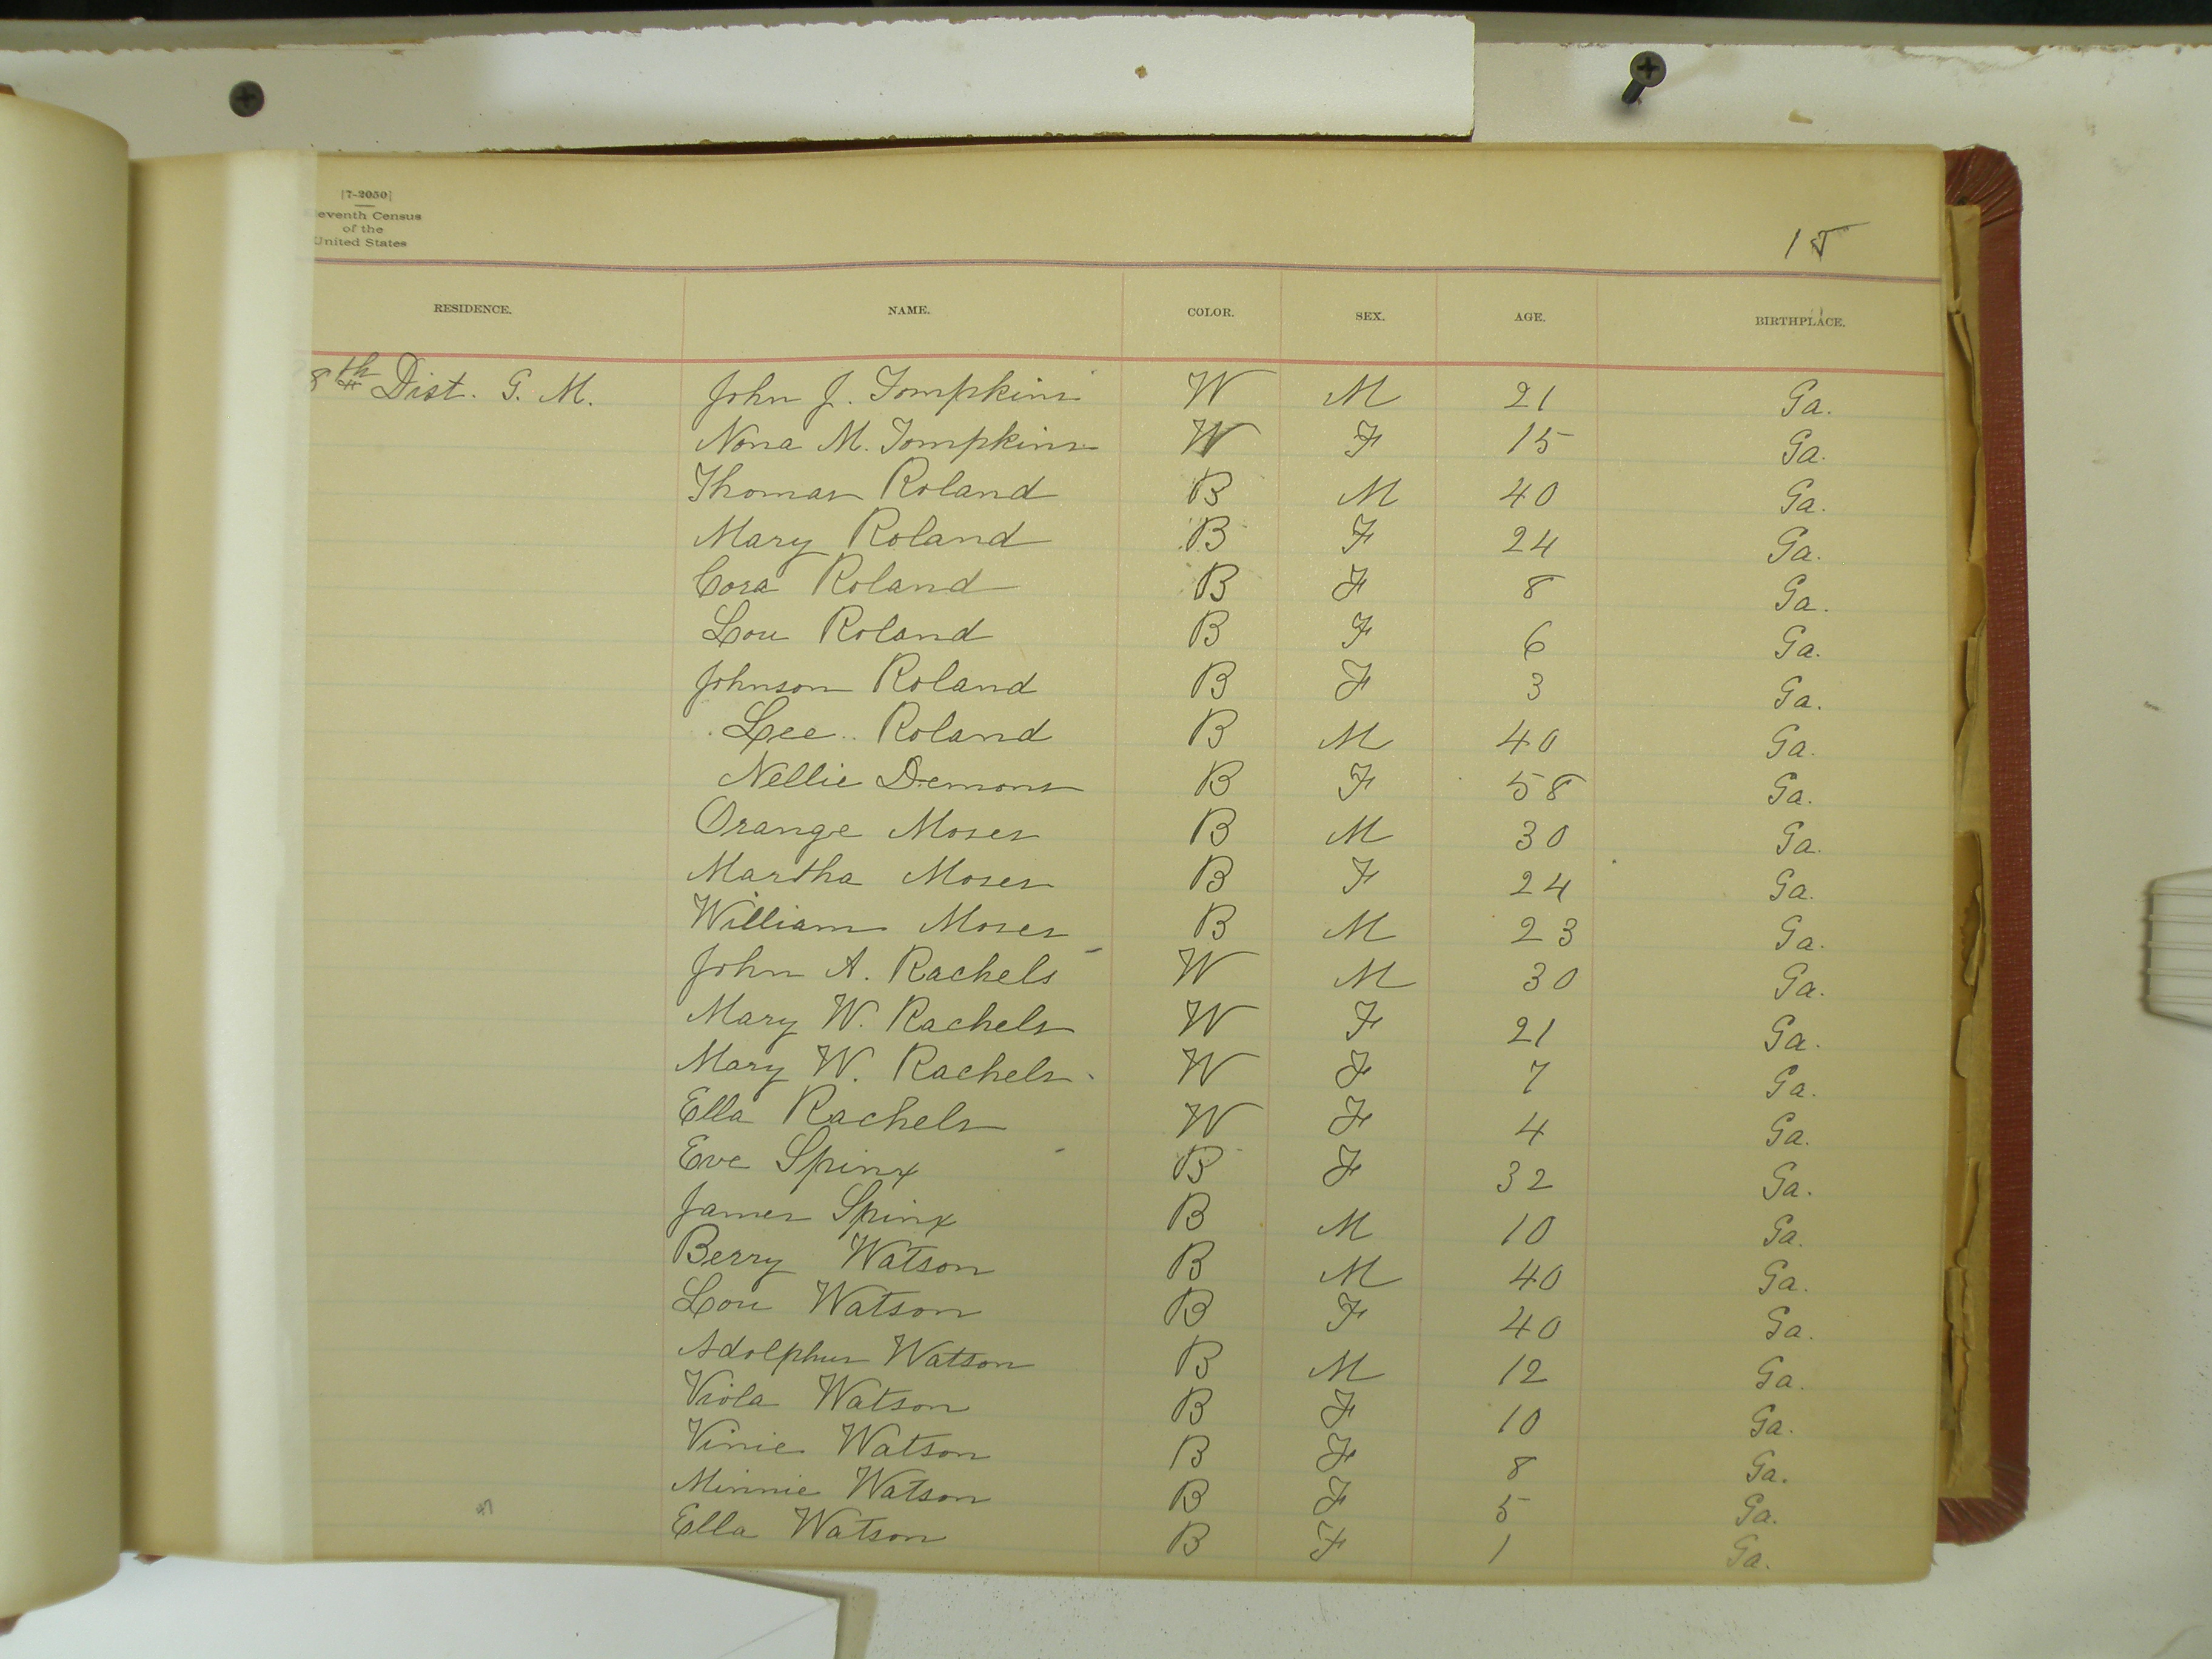 [7-2050]
leventh Census
of the
United States
15
RESIDENCE. NAME. COLOR. SEX. AGE. BIRTHPLACE.
8th Dist. G. M. John J. Tompkins W M 21 Ga.
Nona M. Tompkins W F 15 Ga.
Thomas Roland B M 40 Ga.
Mary Roland B F 24 Ga.
Cora Roland B F 8 Ga.
Lou Roland B F 6 Ga.
Johnson Roland B F 3 Ga.
Lee Roland B M 40 Ga.
Nellie Demons B F 58 Ga.
Orange Moses B M 30 Ga.
Martha Moses B F 24 Ga.
William Moses B M 23 Ga.
John A. Rachels W M 30 Ga.
Mary W. Rachels W F 21 Ga.
Mary W. Rachels W F 7 Ga.
Ella Rachels W F 4 Ga.
Eve Spinx B F 32 Ga.
James Spinx B M 10 Ga.
Berry Watson B M 40 Ga.
Lou Watson B F 40 Ga.
Adolphus Watson B M 12 Ga.
Viola Watson B F 10 Ga.
Vinie Watson B F 8 Ga.
Minnie Watson B F 5 Ga.
Ella Watson B F 1 Ga.